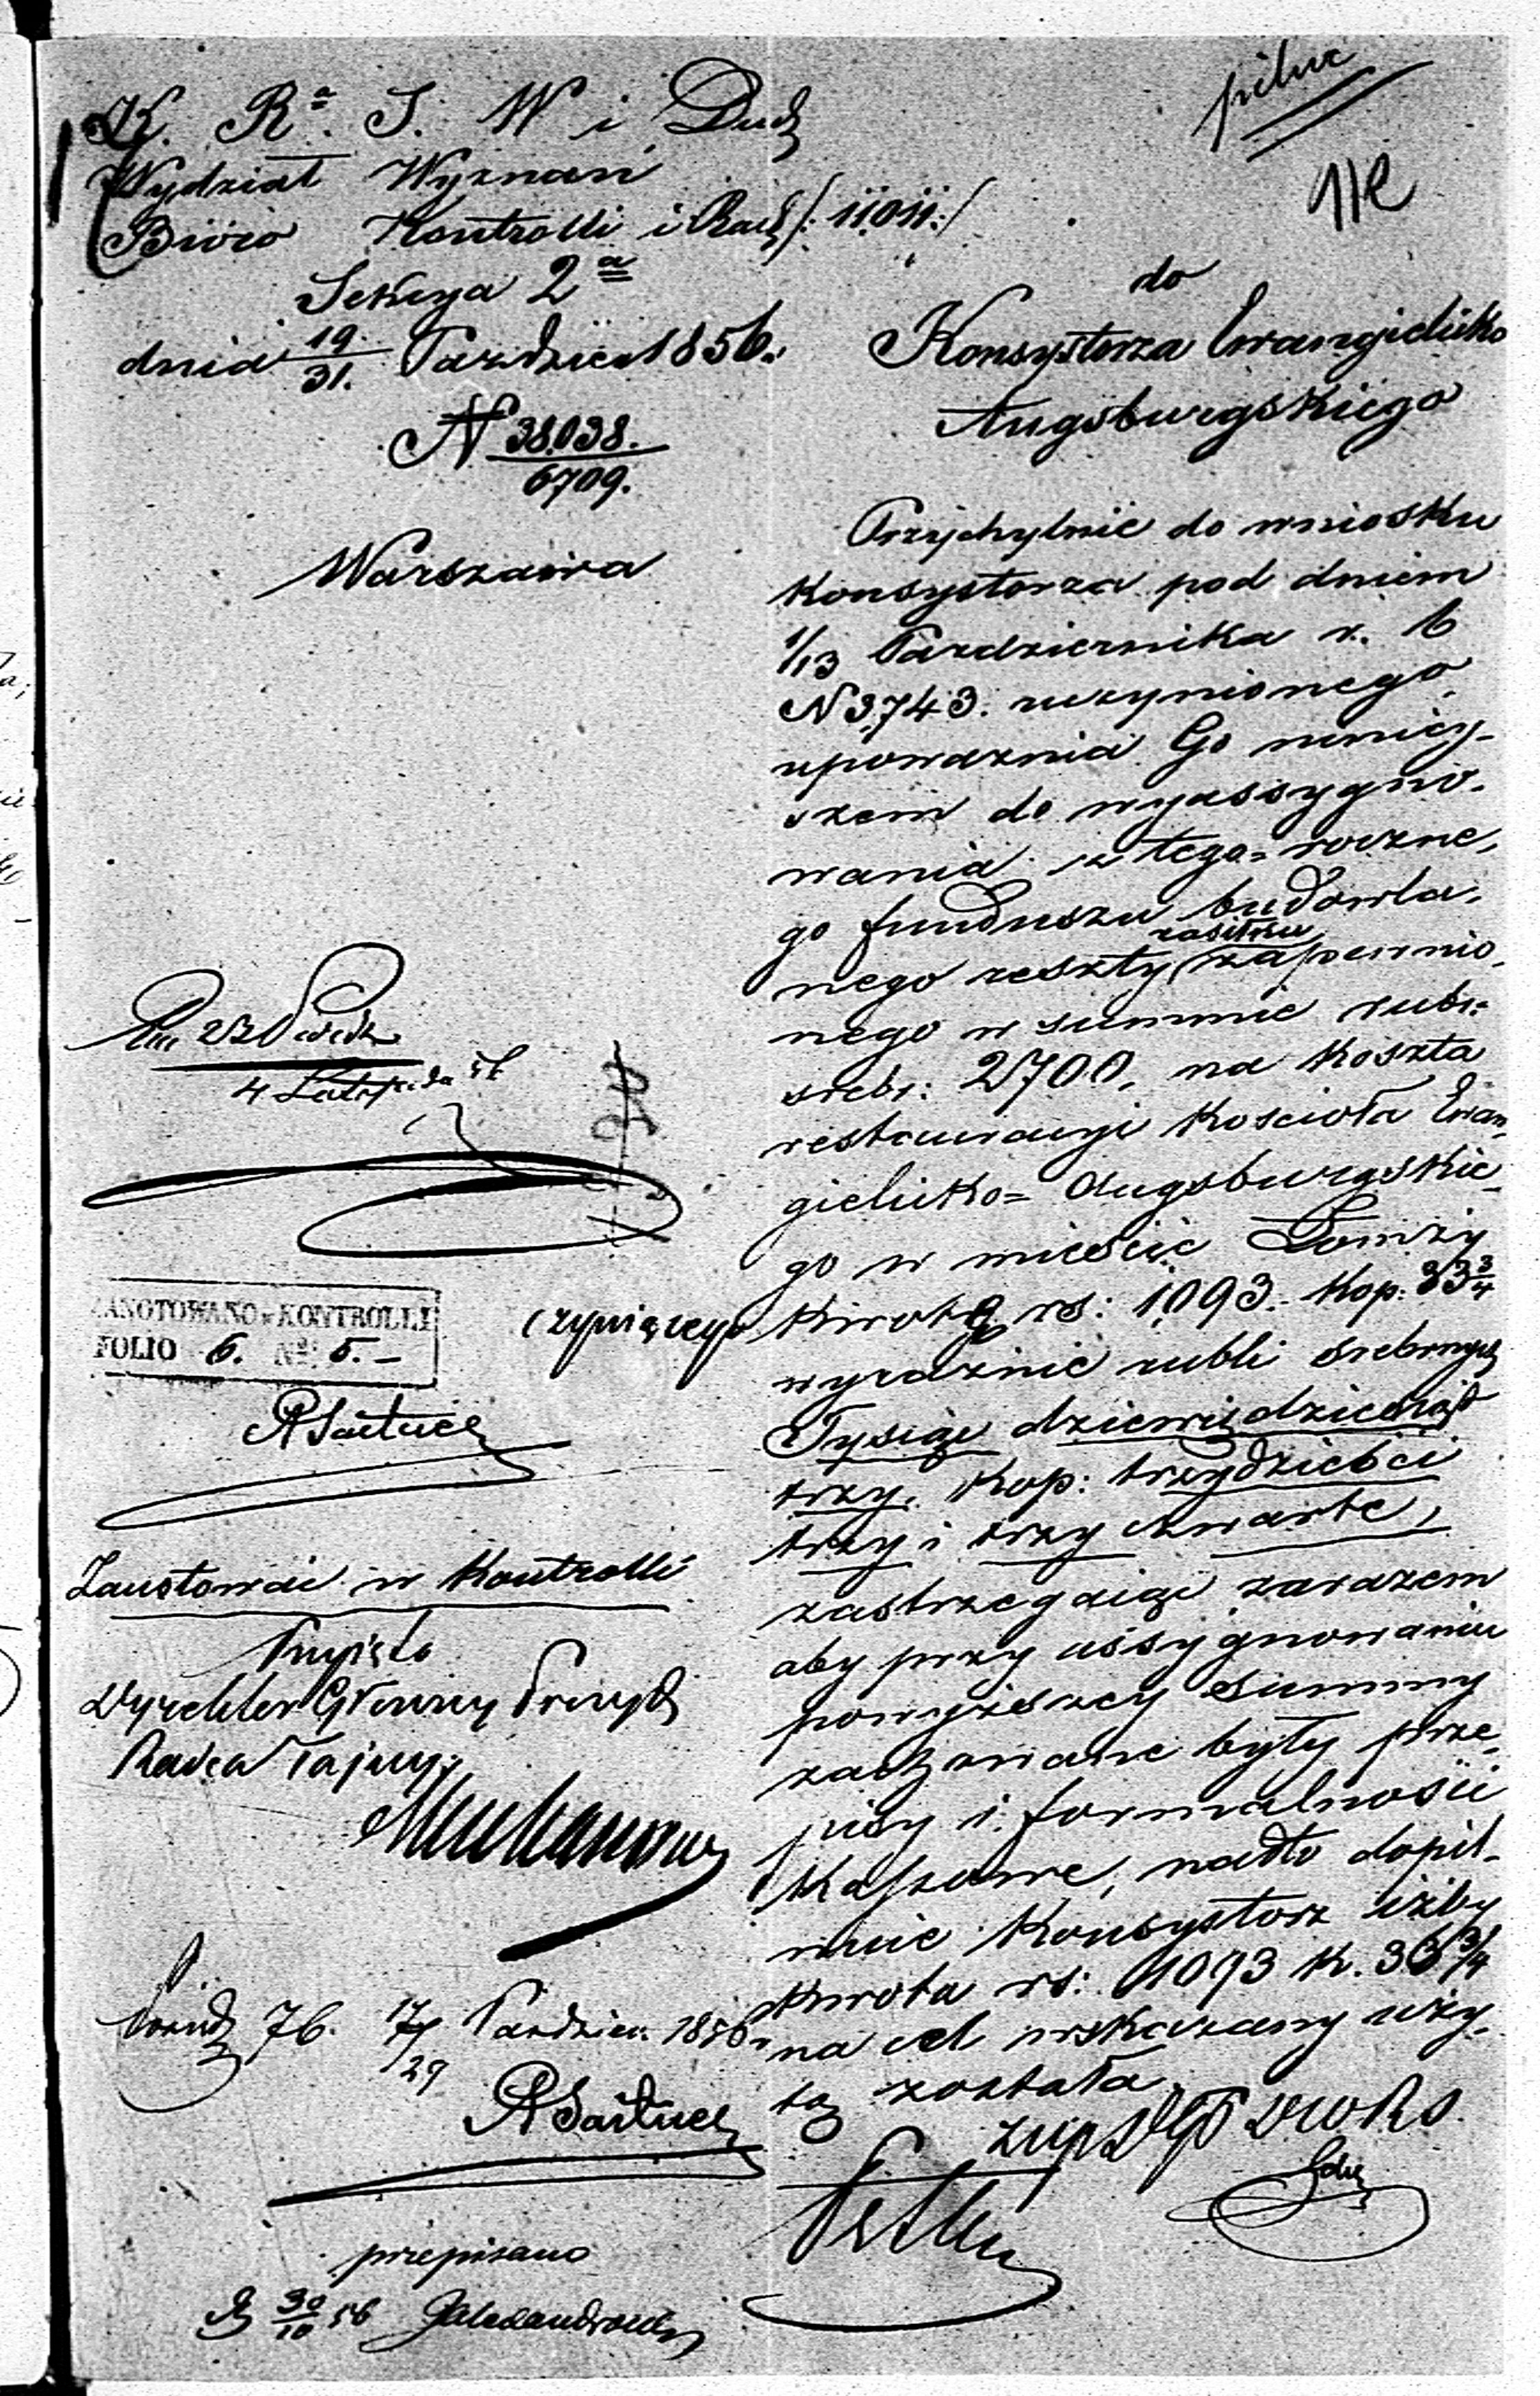 pilne
K. Rª. S. W i Duch
Wydział Wyznań
Biuro Kontrolli i Rach /: 11011:/
Sekcya 2ª
dnia 19/31. Paździer 1856.
N 38,038./6709.
Warszawa
do
Konsystorza Ewangielicko
Augsburgskiego
Przychylnie do wniosku
Konsystorza pod dniem
1/13 Pazdziernika r. b
N 3,743. uczynionego,
upoważnia Go niniey-
szem do wyassygno-
wania z tego-roczne,
go funduszu budowla,
nego reszty zasiłku zapewnio,
nego w summie rubr:
srebr: 2700, na koszta
restauracyi Kościoła Ewan-
gielicko= Augsburgskie-
go w mieście Łomży
czyniącego
Kwotę rs: 1,093. kop. 33 3/4
wyraźnie rubli srebrnych
Tysiąc dziewięćdziesiąt
trzy, kop: trzydzieści
trzy i trzy czwarte,
zastrzegaiąc zarazem
aby przy assygnowaniu
powyższey summy
zachowane były prze,
pisy i formalności
Kassowe, nadto dopil-
nuie Konsystorz iżby
Kwota rs: 1093 k. 33 3/4
na cel wskazany uży-
tą została
4 Listopada 56
ZANOTOWANO w KONTROLLI
FOLIO 6. No. 5.-
Zanotować w Kontrolli
Przyięto
Dyrektor Główny Prezyd
Radca Tajny,
Muchanow
76. 17/29 Paździer. 1856
przepisano
d 30/10 56